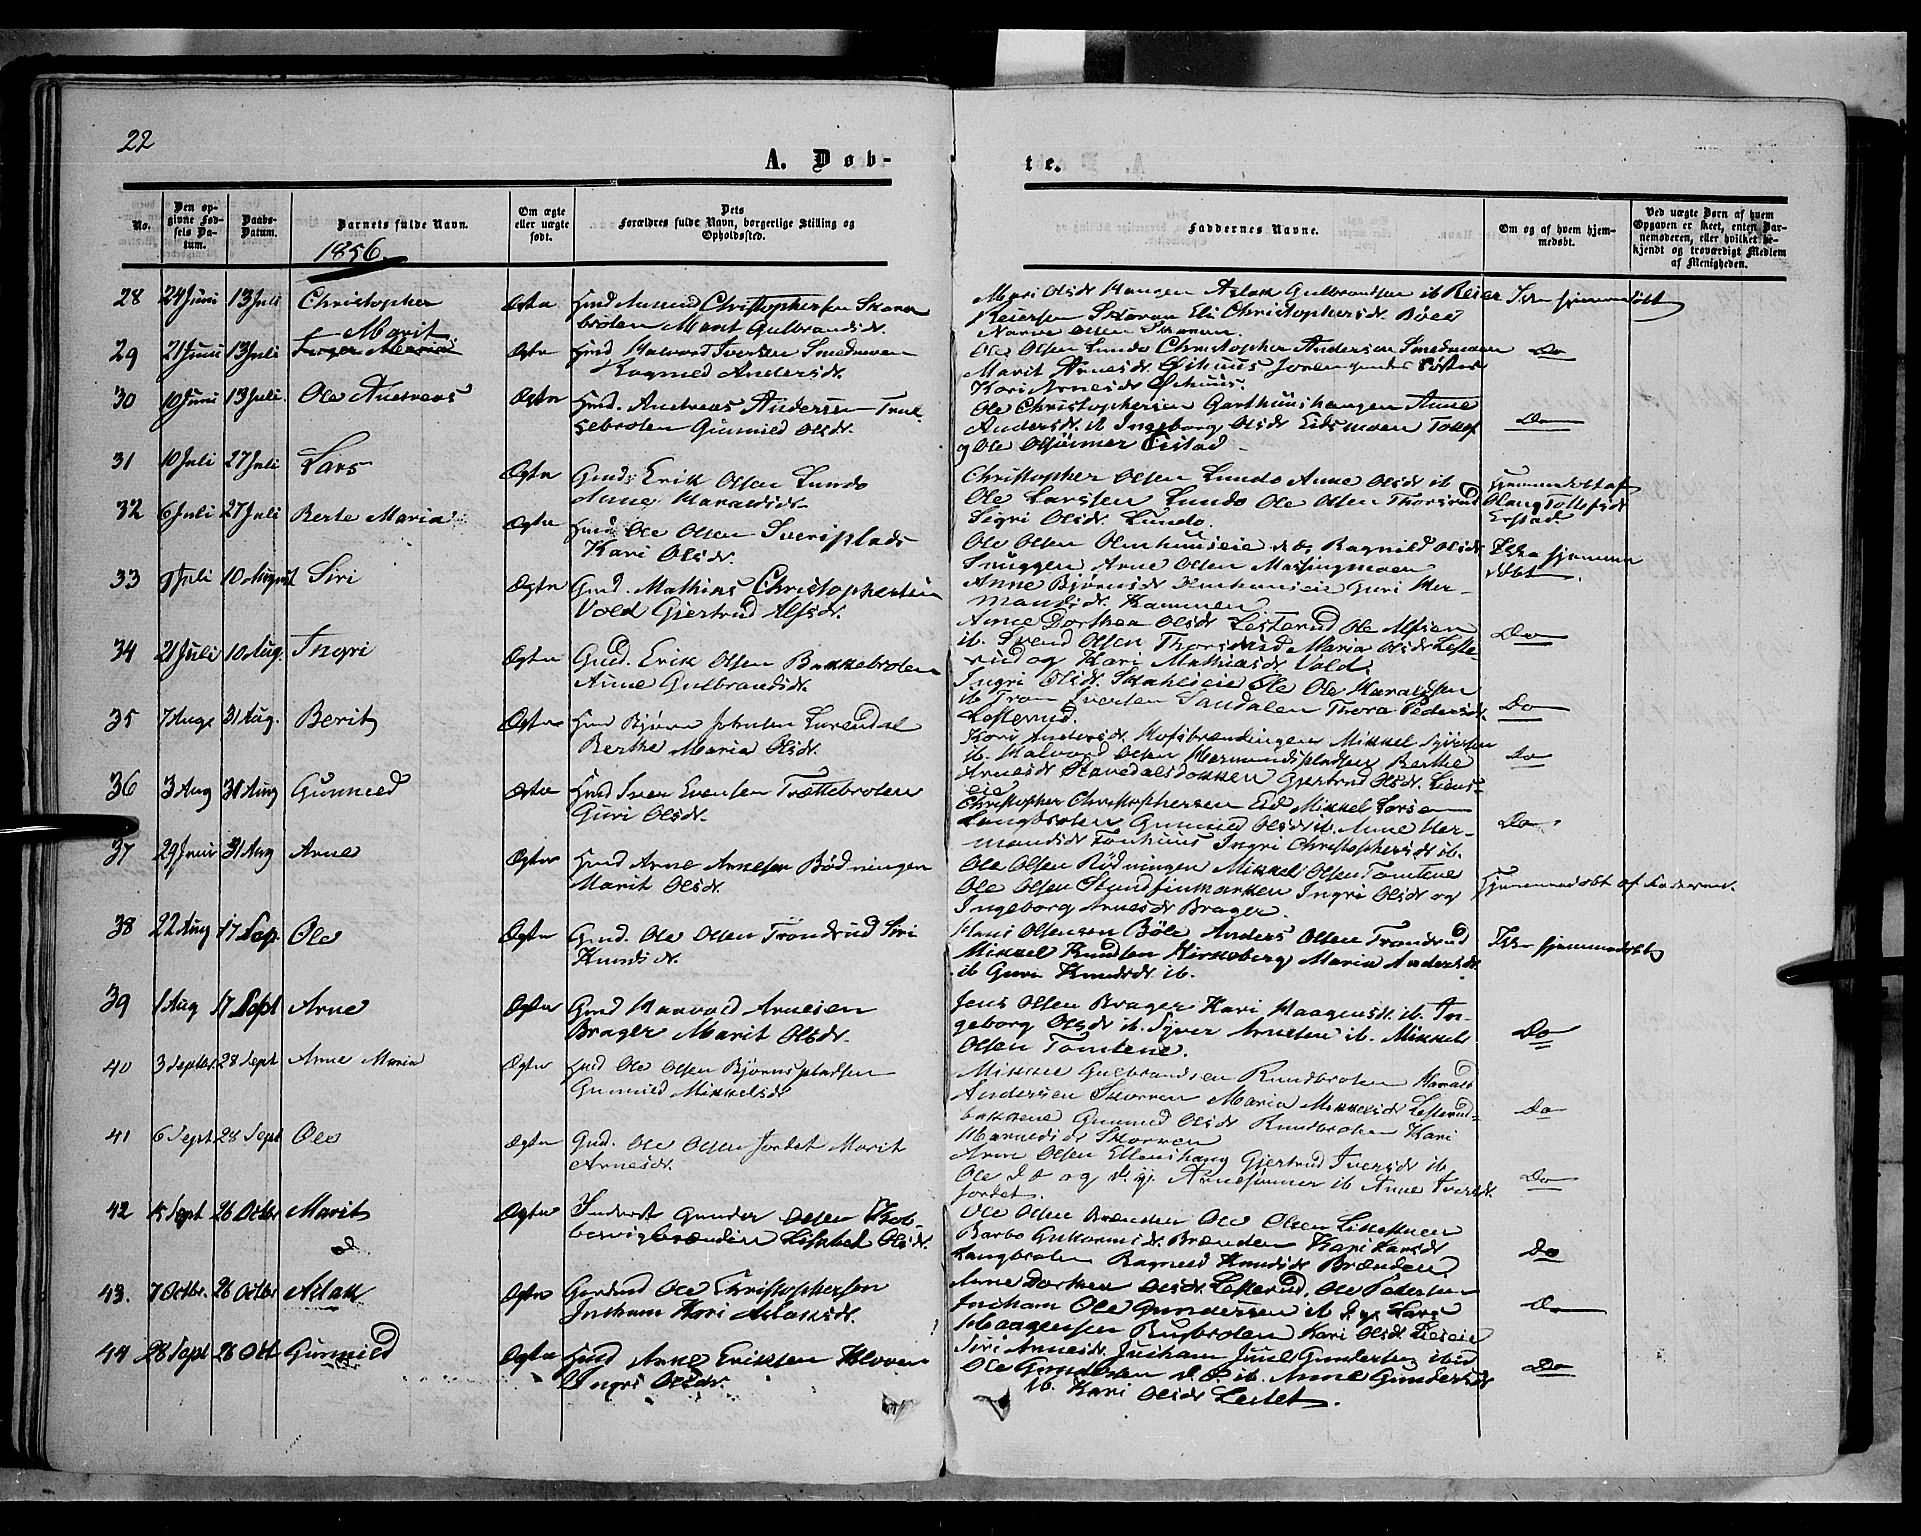 22
A. Døb-
te.
No.
Den op-
givne Fød-
sels Da-
tum.
Daabs-
Datum.
Barnets fulde Navn.
Om ægte
eller uægte
født.
Dets
Forældres fulde Navn, borgerlige Stilling og
Opholdssted.
Faddernes Navne.
Om og af hvem hjem-
medøbt.
Ved uægte Børn af hvem
Opgaven er skeet, enten Bar-
nemoderen, eller hvilket be-
kjendt og troværdigt Medlem
af Menigheden.
1856.
28 24 Juni 13 Juli Christopher Ægte Hmd Christophersen
broten Marit Gulbrandsdr.
Mari Olsdr Haugen Aslak Gulbrandsen ib Reier
Reiersen Eli Christophersdr. Böle
Olsen
Marit
29 21 Juni 13 Juli Ægte Hmd Halvord Iversen Smedmoen
Ragnild Andersdr.
Ole Olsen Lunde Christopher Andersen Smedmoen
Marit Arnesdr Öihuus
Kari Arnesdr Öihuus.
Do
30 10 Juni 13 Juli. Ole Andreas Ægte Hmd. Andreas Andersen
Gunnild Olsdr.
Ole Christophersen Garthuushaugen Anne
Andersdr. ib Ingeborg Olsdr Eidsmoen
og Ole
Do
31 10 Juli 27 Juli Lars Ægte Gmd: Erik Olsen Lunde
Anne Haraldsdr.
Christopher Olsen Lunde Anne Olsdr ib
Ole Larssen Lunde Ole Olsen Thorsrud
Sigri Olsdr. Lunde.
Hjemmedøbt af
32 6 Juli 27 Juli Berte Maria Ægte Hmd Ole Olsen Iversplads
Kari Olsdr.
Ole Olsen Ragnild Olsdr
Snuggen Arne Olsen Massingmoen
Anne Bjørnsdr Guri Her-
mandsdr. Kammen
Ikke hjemme
døbt
33 9 Juli 10 August Siri Ægte Gmd. Mathias Christophersen
Vold Gjertrud Alfsdr.
Anne Dorthea Olsdr Lesterud Ole Alfsen
ib. Svend Olsen Thorsrud Maria Olsdr Leste-
rud og Kari Mathiasdr Vold.
Do
34 21 Juli 10 Aug. Ingri Ægte Gmd. Erik Olsen Bakkebroten
Anne Gulbrandsdr.
Ingri Olsdr. Ole Haraldsen
ib Iversen Sandalen Thora Pedersdr.
Lesterud.
Do
35 7 Aug 31 Aug. Berit Ægte Hmd Bjørn
Berthe Maria Olsdr.
Kari Andersdr. Mikkel
ib. Halvord Olsen Hermundspladsen Berthe
Arnesdr Gjertrud Olsdr. Liens-
eie
Do
36 3 Aug 31 Aug Gunnild Ægte Hmd Iver Evensen Trøttebroten
Guri Olsdr.
Christopher Christophersen Eid Mikkel Larsen
Langbroten Gunnild Olsdr ib. Anne Her-
mandsdr Ingri Christophersdr ib.
Do.
37 29 Juni 31 Aug Arne Ægte Hmd Arne Arnesen Bødningen
Marit Olsdr.
Ole Olsen Rødningen Mikkel Olsen Tomtene
Ole Olsen Ingri Olsdr og
Ingeborg Arnesdr Brager.
Hjemmedøbt af Faderen.
38 22 Aug 17 Sep. Ole Ægte Gmd. Ole Olsen Trondrud Siri
Knudsdr.
Hans Olsensen Böle Anders Olsen Trondrud
Mikkel Knudsen Kirkeberg Maria Andersdr.
ib Guri Knudsdr ib.
Ikke hjemmedøbt
39 1 Aug 17 Sept Arne Ægte Gmd Arnesen
Brager Marit Olsdr.
Jens Olsen Brager Kari Haagensdr. ib. In-
geborg Olsdr ib. Syver Arnesen ib. Mikkel
Olsen Tomtene.
Do
40 3 Septbr. 28 Sept Anne Maria Ægte Hmd Ole Olsen Bjørnspladsen
Gunnild Mikkelsdr
Mikkel Gulbrandsen Knudbroten
Andersen Skorven Maria Mikkelsdr Lesterud-
bakkene Gunnild Olsdr Knudbroten Kari
Skorven
Do
41 6 Sept 28 Sept Ole Ægte Gmd. Ole Olsen Jordet Marit
Arnesdr.
Arne Olsen Ellenshaug Gjertrud Iversdr ib.
Ole d. æ og d. y. Arnesønner ib Anne Iversdr.
Jordet.
Do
42 15 Sept 26 Octbr Marit Ægte Inderst Gunder Olsen
Lisabet Olsdr.
Ole Olsen Brænden Ole Olsen
Barbo Brænden Kari Larsdr
Langbroten Ragnild Knudsdr Brænden.
Do
43. 7 Octbr. 26 Octbr Aslak Ægte Gaardmd Ole Christophersen
Juvham Kari Aslaksdr.
Anne Dorthea Olsdr. Lesterud, Ole Pedersen
Juvham Ole Gundersen ib d. y. Lars
Haagensen Rugbroten Kari Olsdr Lieeie
Do
44 28 Sept 26 Oct Gunnild Ægte Hmd Arne Eriksen
Ingri Olsdr.
Siri Arnesdr. Juvham Juul Gundersen ibid
Ole Gundersen d. æ. ib. Anne Gundersdr
ib. Kari Olsdr Lestet.
Do